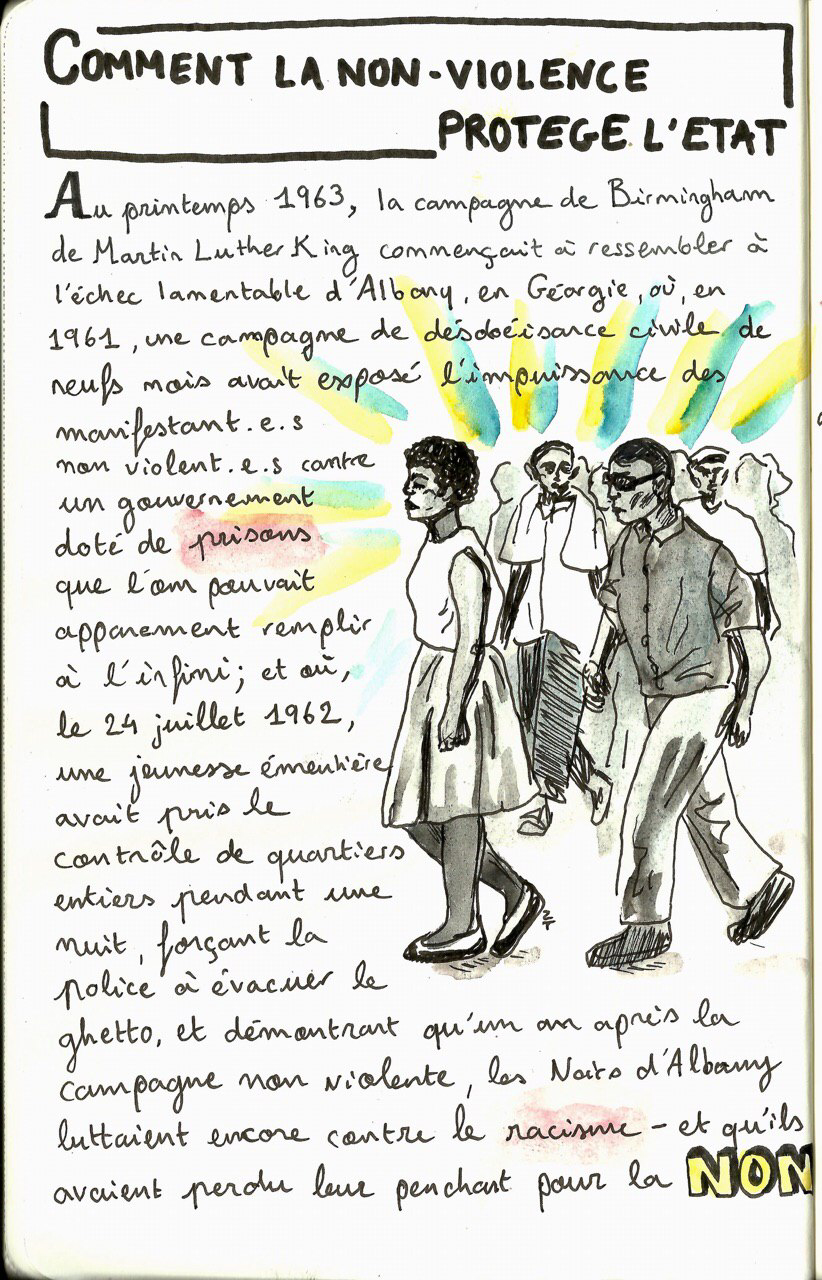 COMMENT LA NON-VIOLENCE
PROTEGE L'ETAT
Au printemps 1963, la campagne de Birmingham
de Martin Luther King commençait à ressembler à
l'échec lamentable d'Albany, en Géorgie, où, en
1961, une campagne de désobéisance civile de
neufs mois avait exposé l'impuissance des
manifestant.e.s
non violent.e.s contre
un gouvernement
doté de prisons
que l'on pouvait
apparement remplir
à l'infini; et où,
le 24 juillet 1962,
une jeunesse émeutière
avait pris le
contrôle de quartiers
entiers pendant une
nuit, forçant la
police à évacuer le
ghetto, et démontrant qu'un an après la
campagne non violente, les Noirs d'Albany
luttaient encore contre le racisme - et qu'ils
avaient perdu leur penchant pour la NON